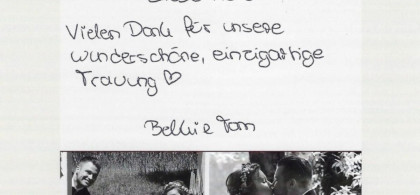 Vielen Dank für unsere
wunderschöne, einzigartige
Trauung ♡
Tom